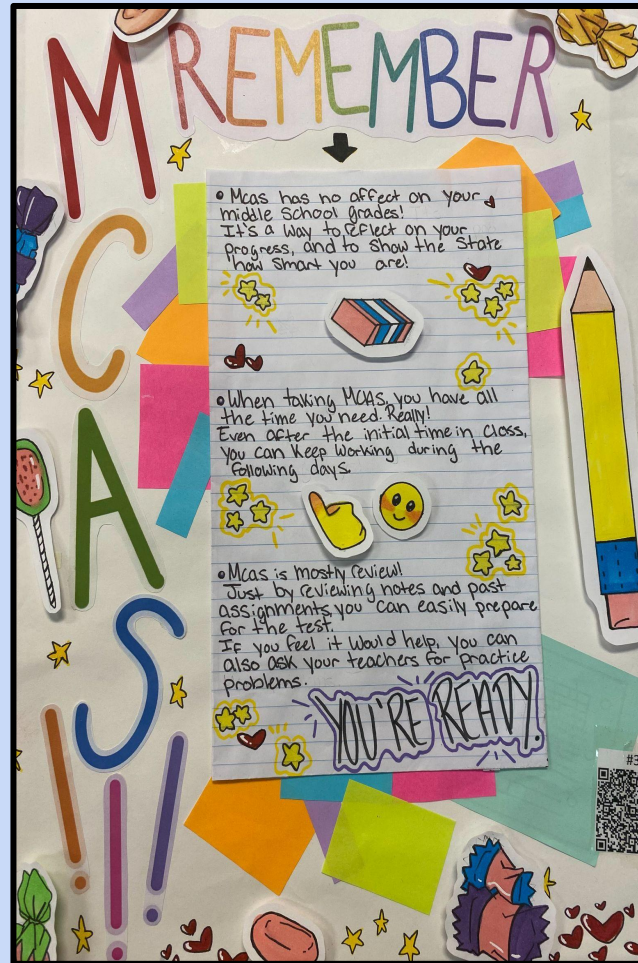 REMEMBER
MCAS!!!
• Mcas has no affect on your
middle School grades!
It's a way to reflect on your
progress, and to show the State
how smart you are!
• When taking MCAS, you have all
the time you need. Really!
Even after the initial time in class,
you can keep working during the
following days.
• Mcas is mostly review!
Just by reviewing notes and past
assignments you can easily prepare
for the test.
If you feel it would help, you can
also ask your teachers for practice
problems.
YOU'RE READY.
#3